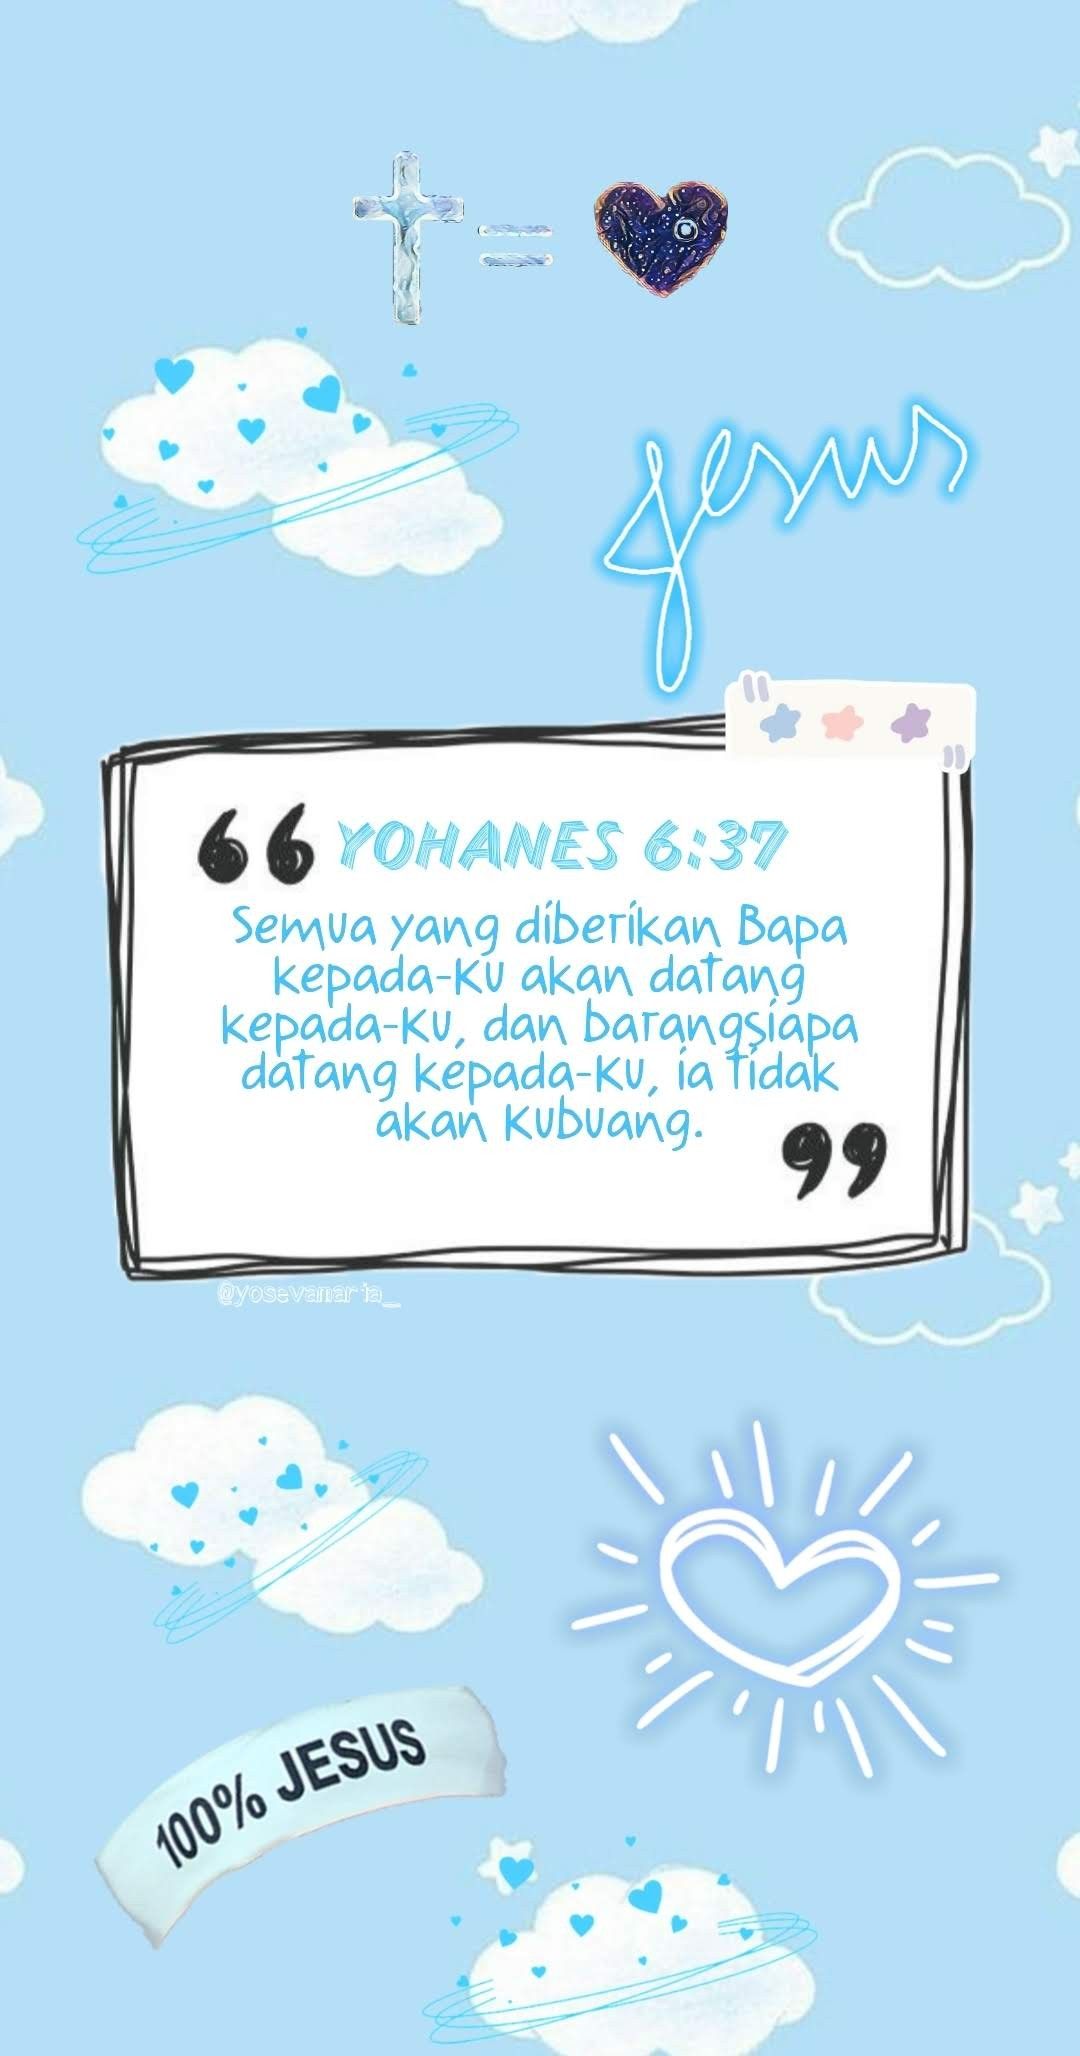 Jesus
YOHANES 6:37
Semua yang diberikan Bapa
kepada-Ku akan datang
kepada-Ku, dan barangsiapa
datang kepada-Ku, ia tidak
akan Kubuang.
@yosevamaria_
100% JESUS